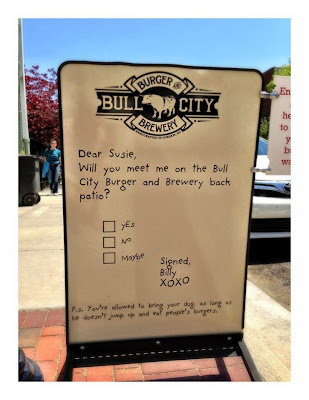 BURGER
BULL CITY
BREWERY
Dear Susie,
Will you meet me on the Bull
City Burger and Brewery back
patio?
yES
No
Maybe
Signed,
Billy
XOXO
P.s. You're allowed to bring your dog, as long as
he doesn't jump up and eat people's burgers.
En
he
to
yo
b
wa